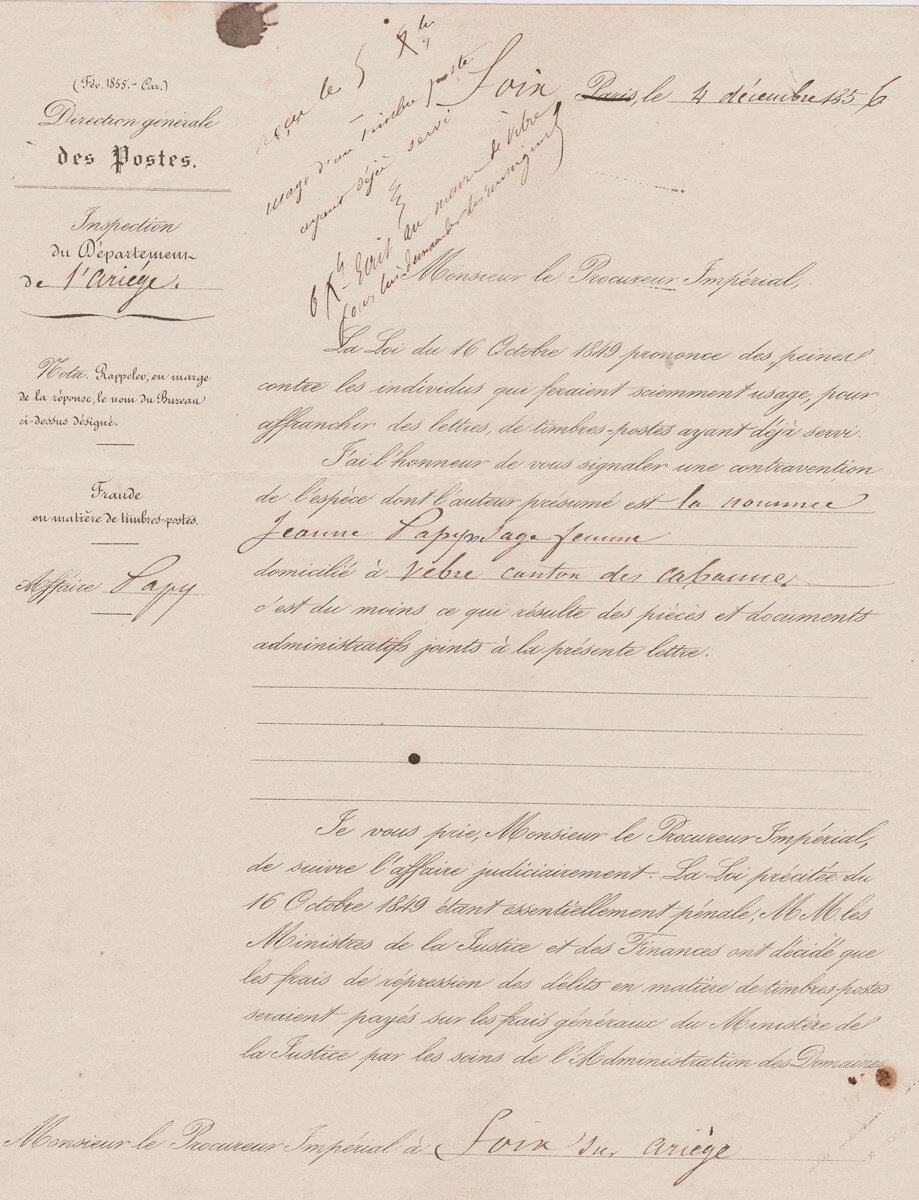 (Fév. 1855. - Car.)
Direction générale
des Postes.
Inspection
du Département
de l'ariége.
Nota. Rappeler, en marge
de la réponse, le nom du Bureau
ci-dessus désigné.
Fraude
en matière de timbres-postes.
Affaire Papy
reçu le 5 Xbre
usage d'un timbre poste
ayant déjà servi
6 Xbre Ecrit au maire de Vèbre
pour lui demander des renseignemts
Foix Paris, le 4 décembre 1856
Monsieur le Procureur Impérial,
La Loi du 16 Octobre 1849 prononce des peines
contre les individus qui feraient sciemment usage, pour
affranchir des lettres, de timbres-postes ayant déjà servi.
J'ai l'honneur de vous signaler une contravention
de l'espèce dont l'auteur présumé est la nommée
Jeanne Papy, sage femme
domicilié à Vèbre canton des cabannes
c'est du moins ce qui résulte des pièces et documents
administratifs joints à la présente lettre.
Je vous prie, Monsieur le Procureur Impérial,
de suivre l'affaire judiciairement. La Loi précitée du
16 Octobre 1849 étant essentiellement pénale, MM. les
Ministres de la Justice et des Finances ont décidé que
les frais de répression des délits en matière de timbres-postes
seraient payés sur les frais généraux du Ministère de
la Justice par les soins de l'Administration des Domaines
Monsieur le Procureur Impérial à Foix sur ariège